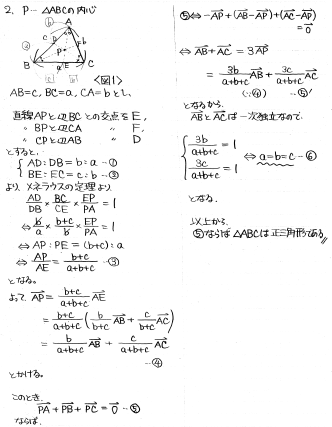 2. P… △ABCの内心
A
B
C
D
F
E
P
a
b
c
<図1>
AB=c, BC=a, CA=bとし、
直線APと辺BCとの交点をE,
〃 BPと辺CA 〃 F,
〃 CPと辺AB 〃 D
とすると、
{ AD:DB=b:a -①
BE:EC=c:b -②
より、メネラウスの定理より
AD/DB × BC/CE × EP/PA = 1
⇔ b/a × (b+c)/b × EP/PA = 1
⇔ AP:PE=(b+c):a
⇔ AP/AE = (b+c)/(a+b+c) -③
となる。
よって AP→ = (b+c)/(a+b+c) AE→
= (b+c)/(a+b+c) ( b/(b+c) AB→ + c/(b+c) AC→ )
= b/(a+b+c) AB→ + c/(a+b+c) AC→
-④
とかける。
このとき、
PA→ + PB→ + PC→ = 0→ -⑤
ならば、
⑤⇔ -AP→ + (AB→-AP→) + (AC→-AP→)
= 0→
⇔ AB→ + AC→ = 3AP→
= 3b/(a+b+c) AB→ + 3c/(a+b+c) AC→
(∵④) -⑤'
となるから、
AB→とAC→は一次独立なので、
{ 3b/(a+b+c) = 1
3c/(a+b+c) = 1
⇔ a=b=c -⑥
となる。
以上から、
⑤ならば △ABCは正三角形である